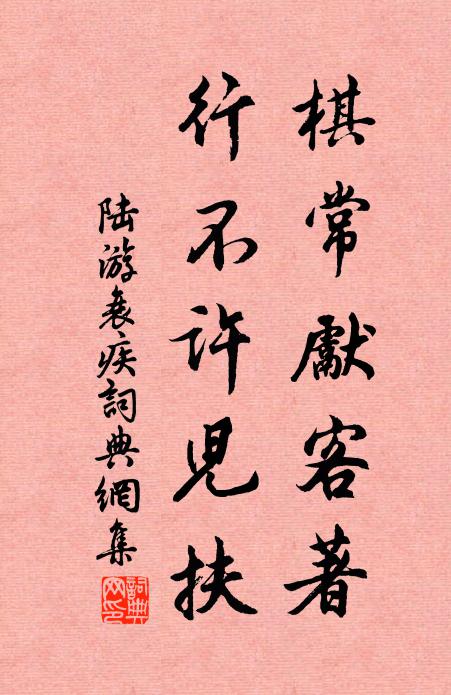 棋常獻客著
行不許兒扶
陆游衰疾詞典網集
詞典網印